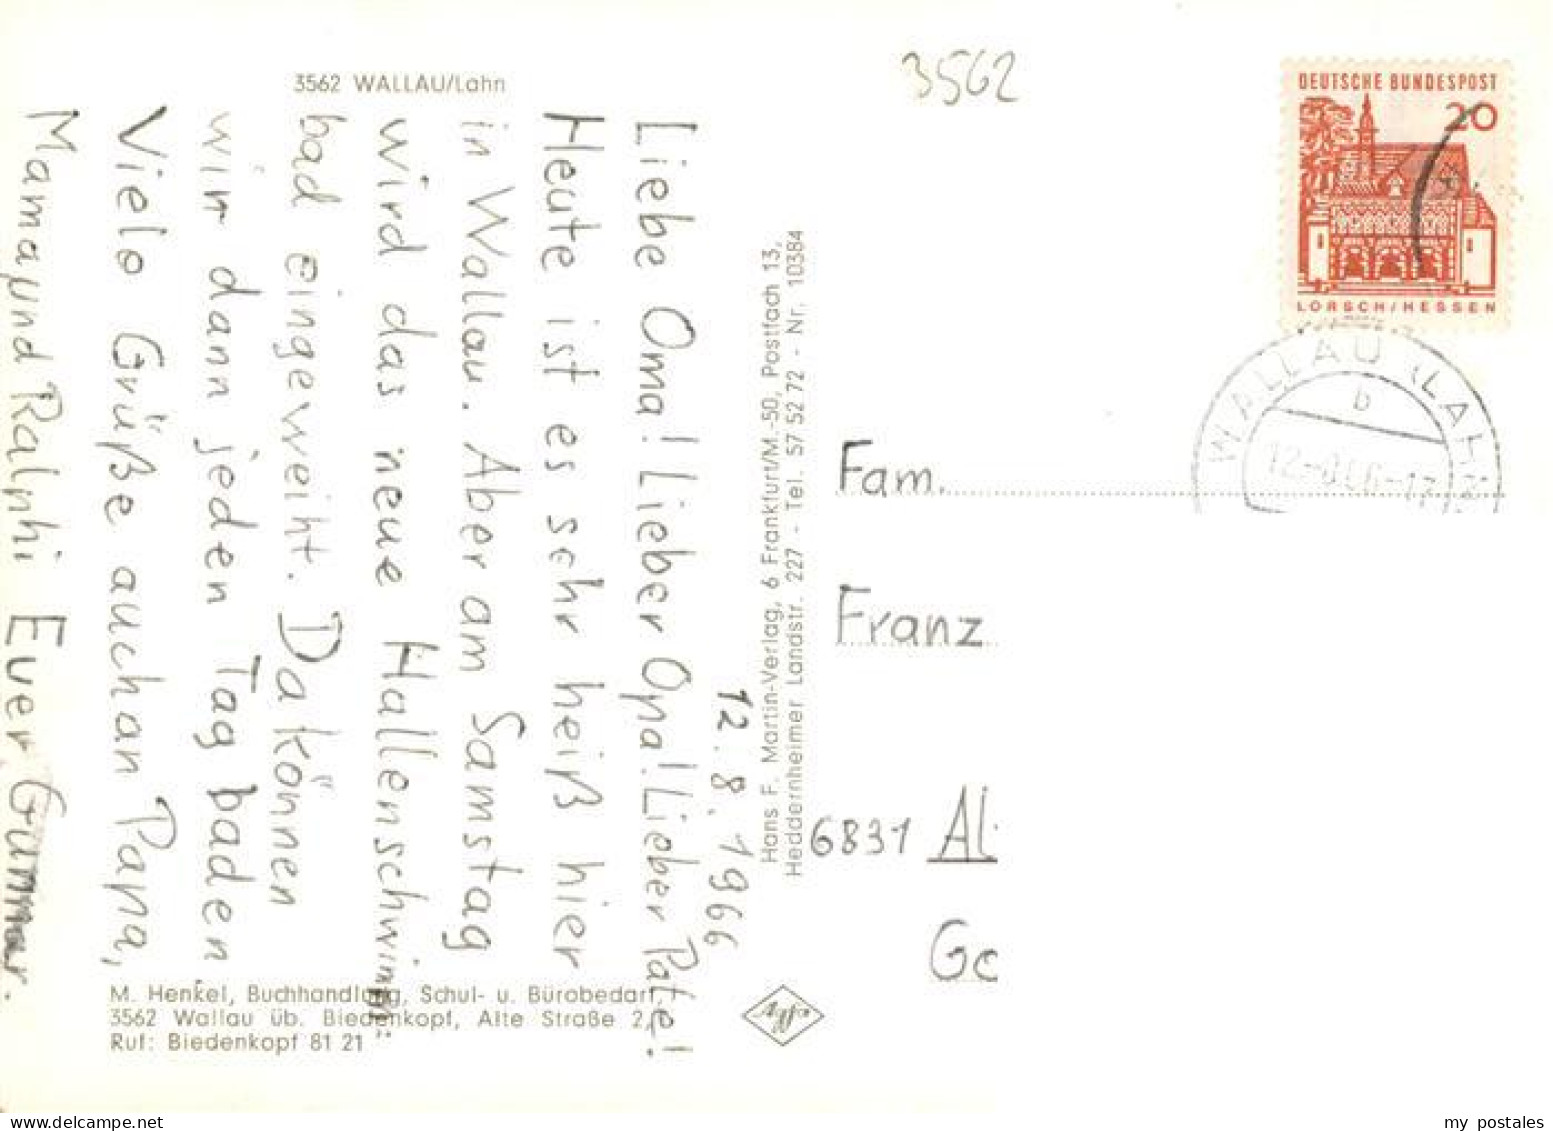 3562 WALLAU/Lahn
12.8.1966
Liebe Oma! Lieber Opa! Lieber Pate!
Heute ist es sehr heiß hier
in Wallau. Aber am Samstag
wird das neue Hallenschwimm=
bad eingeweiht. Da können
wir dann jeden Tag baden.
Viele Grüße auch an Papa,
Mama und Ralphi Euer
M. Henkel, Buchhandlung, Schul- u. Bürobedarf,
3562 Wallau üb. Biedenkopf, Alte Straße 2,
Ruf: Biedenkopf 81 21
Hans F. Martin-Verlag, 6 Frankfurt/M.-50, Postfach 13,
Heddernheimer Landstr. 227 - Tel. 57 52 72 - Nr. 10384
Agfa
3562
DEUTSCHE BUNDESPOST
20
LORSCH/HESSEN
WALLAU (LAH
b
Fam.
Franz
6831 Al
Ge
my postales